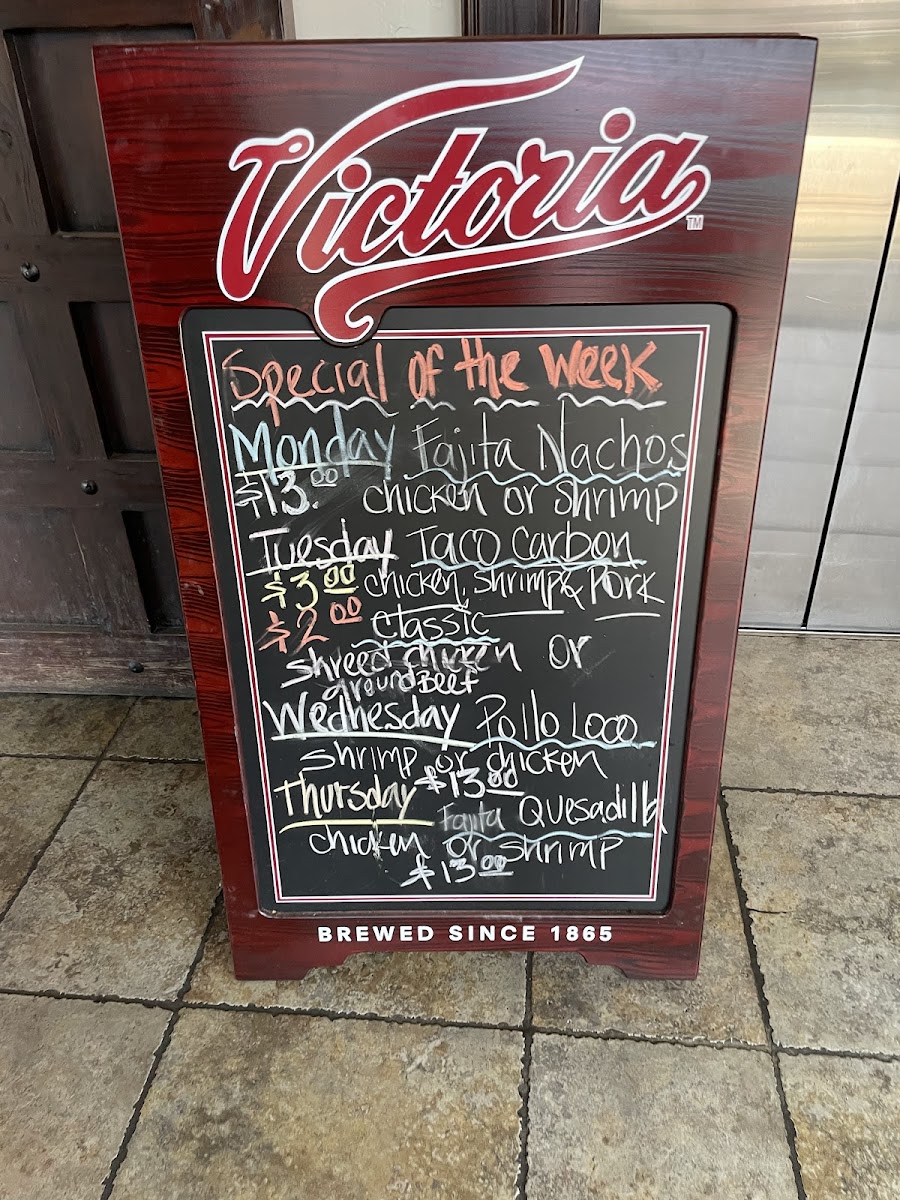 Victoria TM
Special of the Week
Monday Fajita Nachos
$13.00 chicken or Shrimp
Tuesday Taco Carbon
$3.00 chicken, Shrimp & Pork
$2.00 classic
shreed chicken or
ground Beef
Wednesday Pollo Loco
shrimp or chicken
$13.00
Thursday Fajita Quesadilla
chicken or shrimp
$13.00
BREWED SINCE 1865